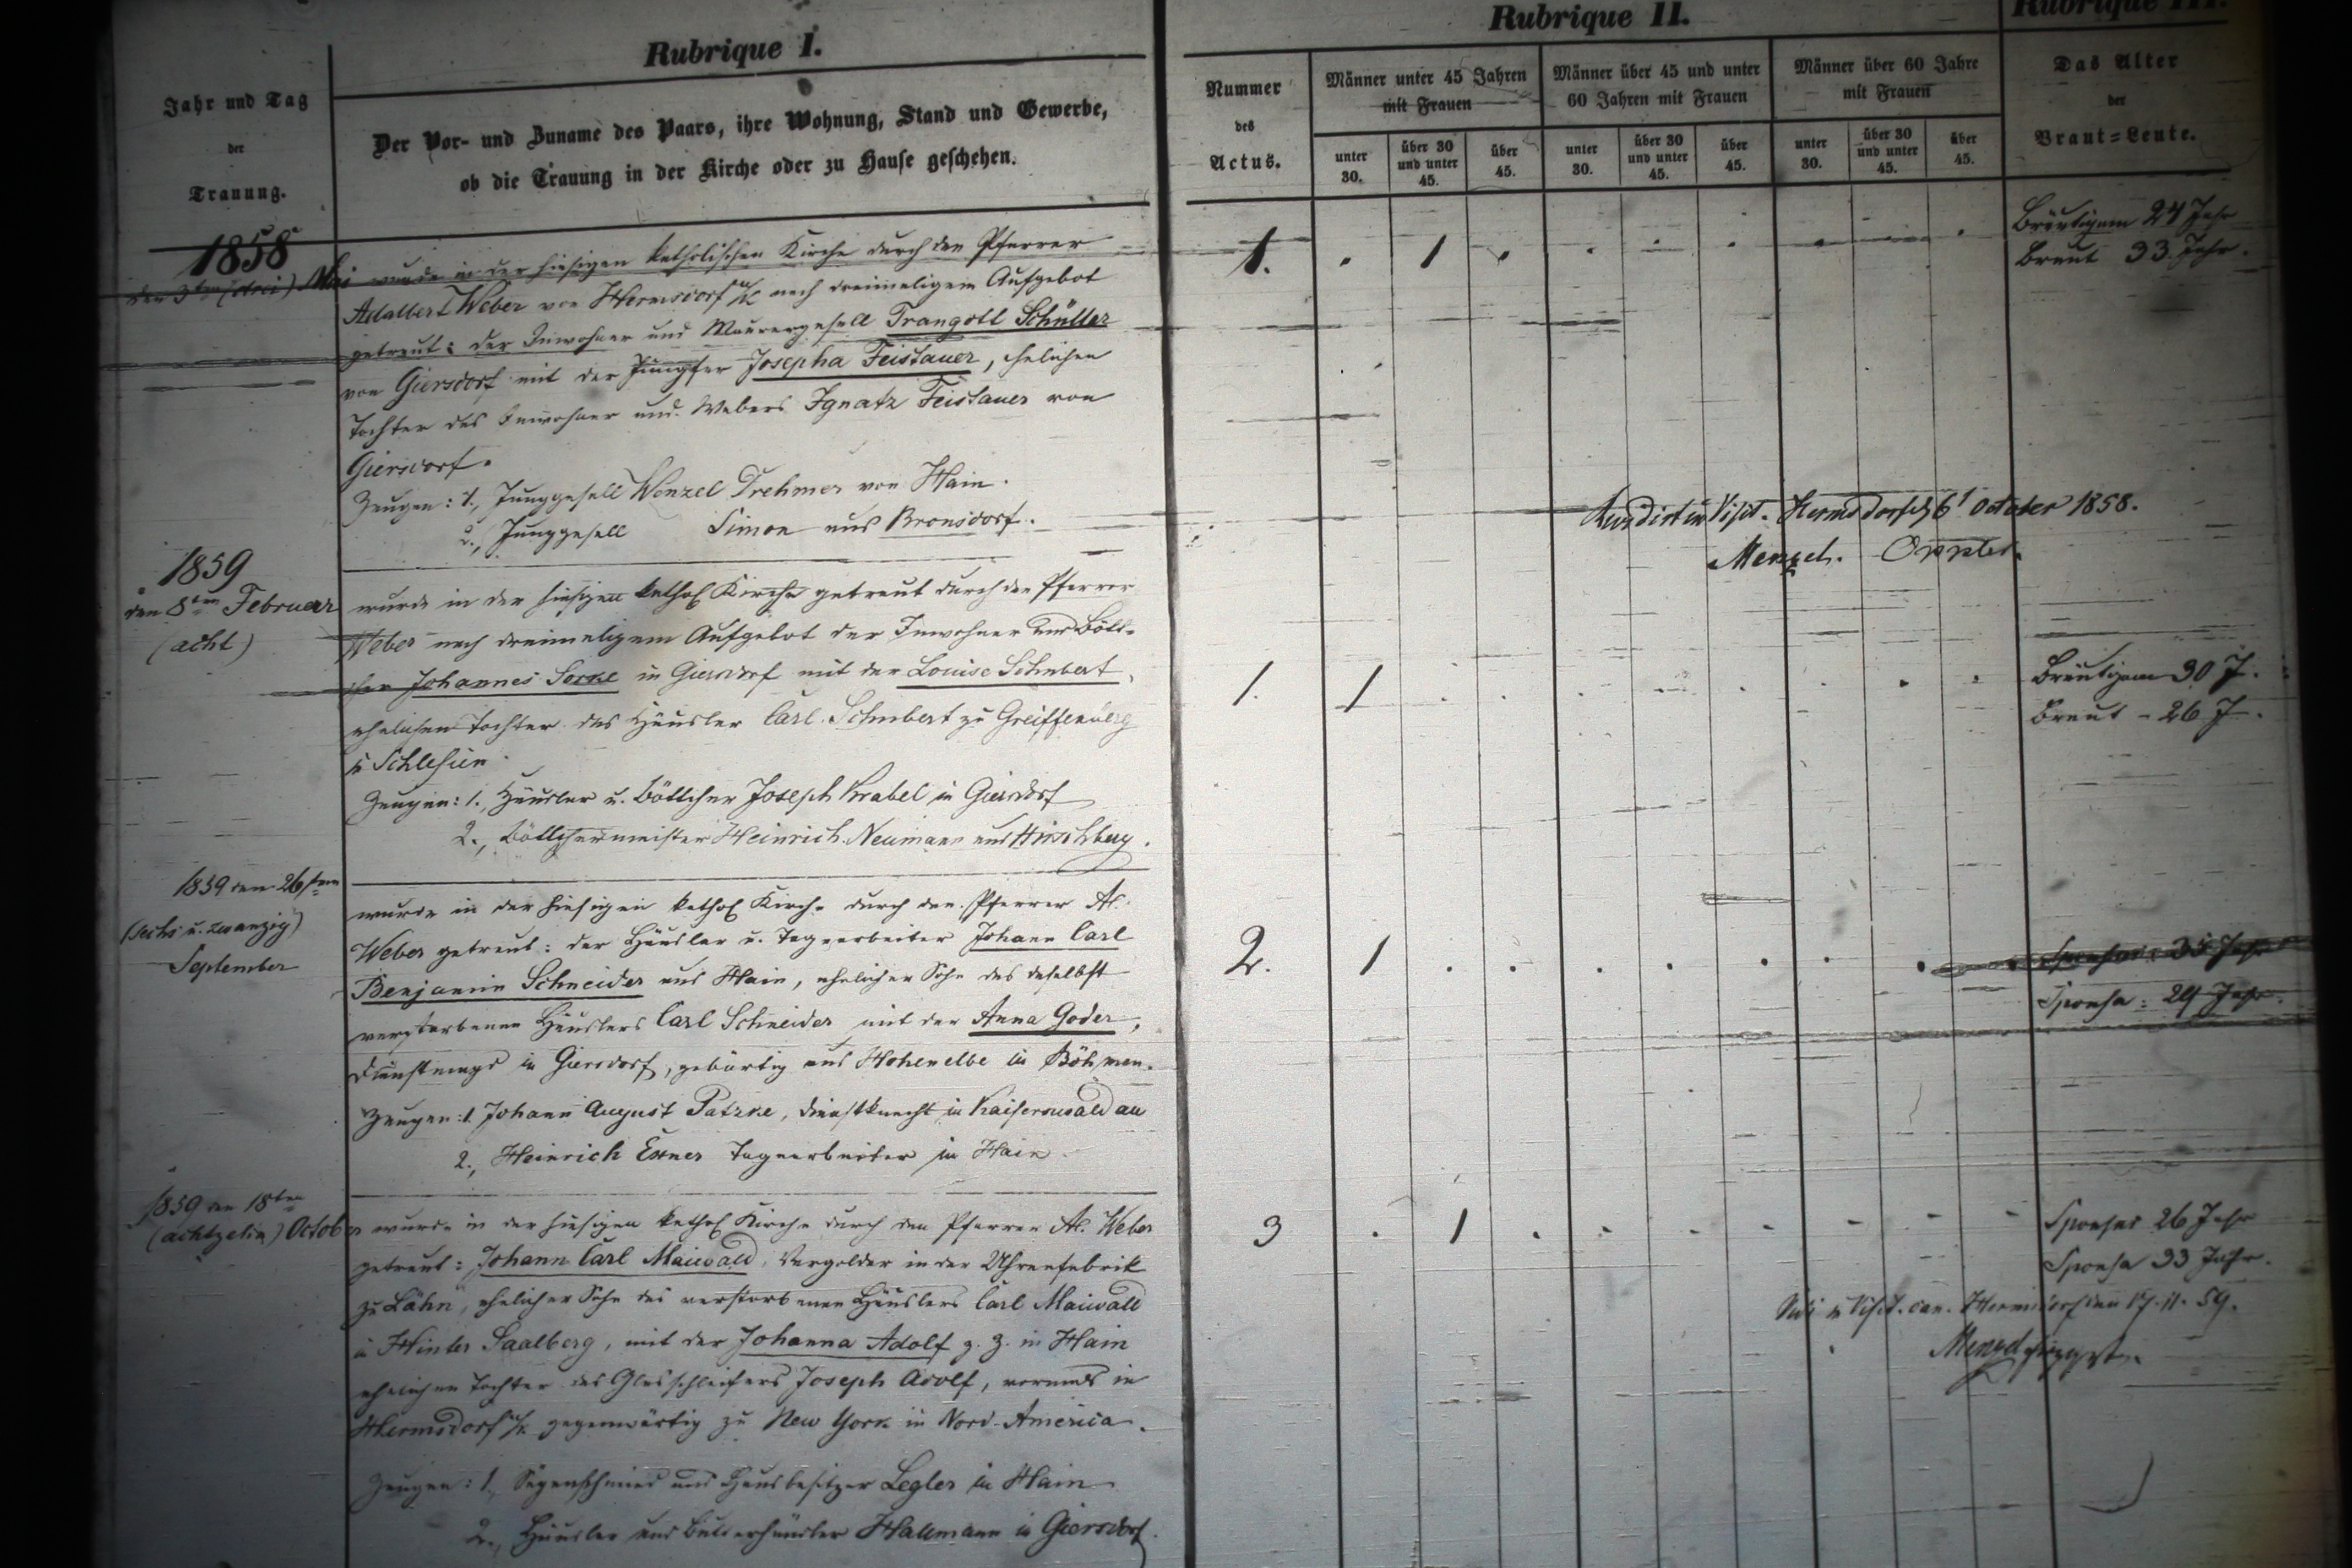 Rubrique I.
Rubrique II.
Rubrique III.
Jahr und Tag
der
Trauung.
Der Vor- und Zuname des Paars, ihre Wohnung, Stand und Gewerbe,
ob die Trauung in der Kirche oder zu Hause geschehen.
Nummer
des
Actus.
Männer unter 45 Jahren
mit Frauen
unter
30.
über 30
und unter
45.
über
45.
Männer über 45 und unter
60 Jahren mit Frauen
unter
30.
über 30
und unter
45.
über
45.
Männer über 60 Jahre
mit Frauen
unter
30.
über 30
und unter
45.
über
45.
Das Alter
der
Braut=Leute.
1858
den 3ten (drei) Mai
wurde in der hiesigen katholischen Kirche durch den Pfarrer
Adalbert Weber von Hermsdorf u/K nach dreimaligem Aufgebot
getraut: der Inwohner und Maurergesell Traugott Schüller
von Giersdorf mit der Jungfer Josepha Feistauer, ehelichen
Tochter des Inwohner und Webers Ignatz Feistauer von
Giersdorf.
Zeugen: 1., Junggesell Wenzel Trehmer von Hain.
2., Junggesell Simon aus Bronsdorf.
1. . 1 . . . . . . .
Bräutigam 24 Jahr
Braut 33 Jahr.
Visit. Hermsdorf d 6t October 1858.
Menzel.
1859
den 8ten Februar
(acht)
wurde in der hiesigen kathol Kirche getraut durch den Pfarrer
Weber nach dreimaligem Aufgebot der Inwohner und Bött-
cher Johannes Sorke in Giersdorf mit der Louise Schubert,
ehelichen Tochter des Häusler Carl Schubert zu Greiffenberg
in Schlesien.
Zeugen: 1., Häusler u. Böttcher Joseph Krabel in Giersdorf
2., Böttchermeister Heinrich Neumann aus Hirschberg.
1. 1 . . . . . . . .
Bräutigam 30 J.
Braut - 26 J.
1859 den 26sten
(sechs u. zwanzig)
September
wurde in der hiesigen kathol Kirche durch den Pfarrer A.
Weber getraut: der Häusler u. Tagearbeiter Johann Carl
Benjamin Schneider aus Hain, ehelicher Sohn des daselbst
verstorbenen Häuslers Carl Schneider mit der Anna Goder,
Dienstmagd in Giersdorf, gebürtig aus Hohenelbe in Böhmen.
Zeugen: 1. Johann August Patzke, Dienstknecht in Kaiserswaldau
2., Heinrich Exner Tagearbeiter in Hain.
2. 1 . . . . . . .
Sponsus: 35 Jahr
Sponsa: 29 Jahr.
1859 den 18ten
(achtzehn) October
wurde in der hiesigen kathol Kirche durch den Pfarrer A. Weber
getraut: Johann Carl Maiwald, Vergolder in der Uhrenfabrik
zu Lähn, ehelicher Sohn des verstorbenen Häuslers Carl Maiwald
in Hinter Saalberg, mit der Johanna Adolf z. Z. in Hain
ehelichen Tochter des Glasschleifers Joseph Adolf, vormals in
Hermsdorf u/K. gegenwärtig zu New York in Nord-America.
Zeugen: 1., Sägenschmied und Hausbesitzer Legler in Hain
2., Häusler und Butterhändler Hallmann in Giersdorf.
3 . 1 . . . . - - -
Sponsus 26 Jahr
Sponsa 33 Jahr.
Vidi in Visit. can. Hermsdorf den 17. 11. 59.
Menzel